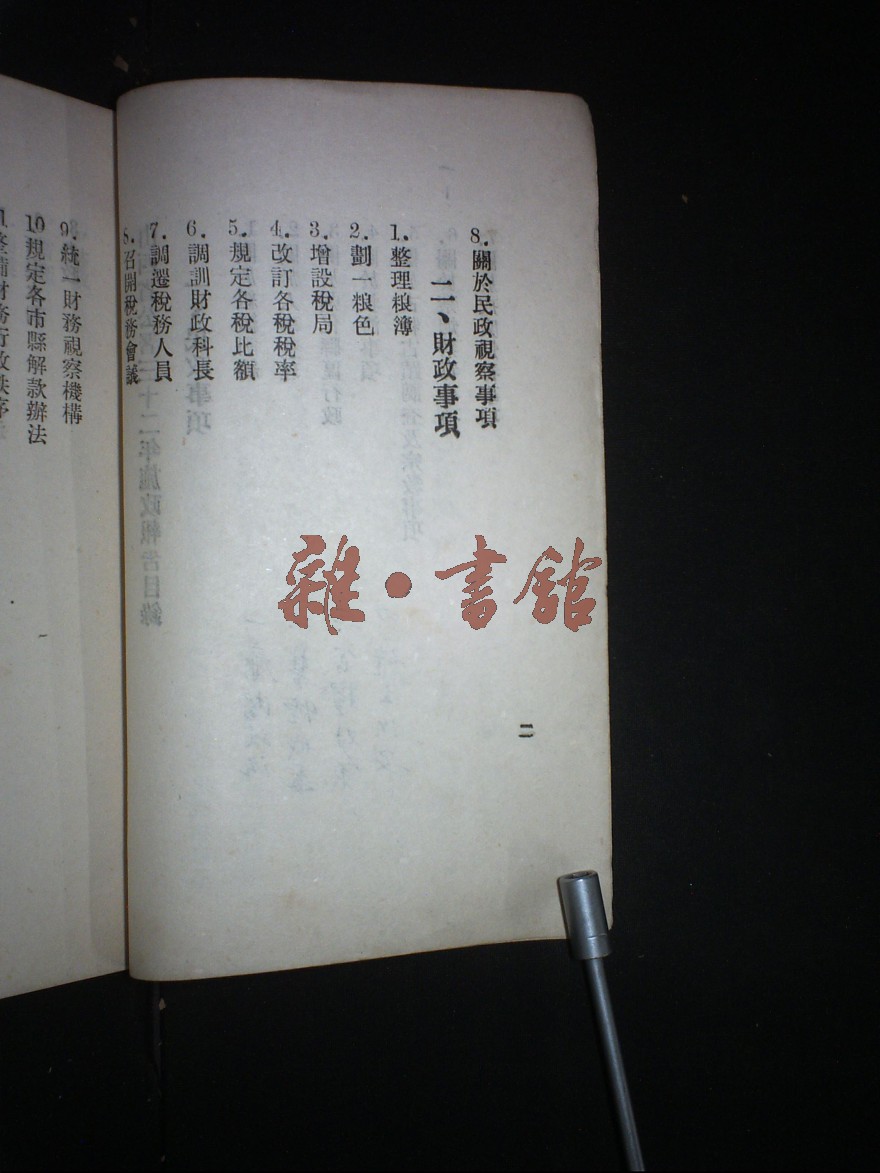 8.關於民政視察事項
二、財政事項
1.整理粮簿
2.劃一粮色
3.增設稅局
4.改訂各稅稅率
5.規定各稅比額
6.調訓財政科長
7.調遷稅務人員
8.召開稅務會議
二
9.統一財務視察機構
10規定各市縣解款辦法
雜·書館